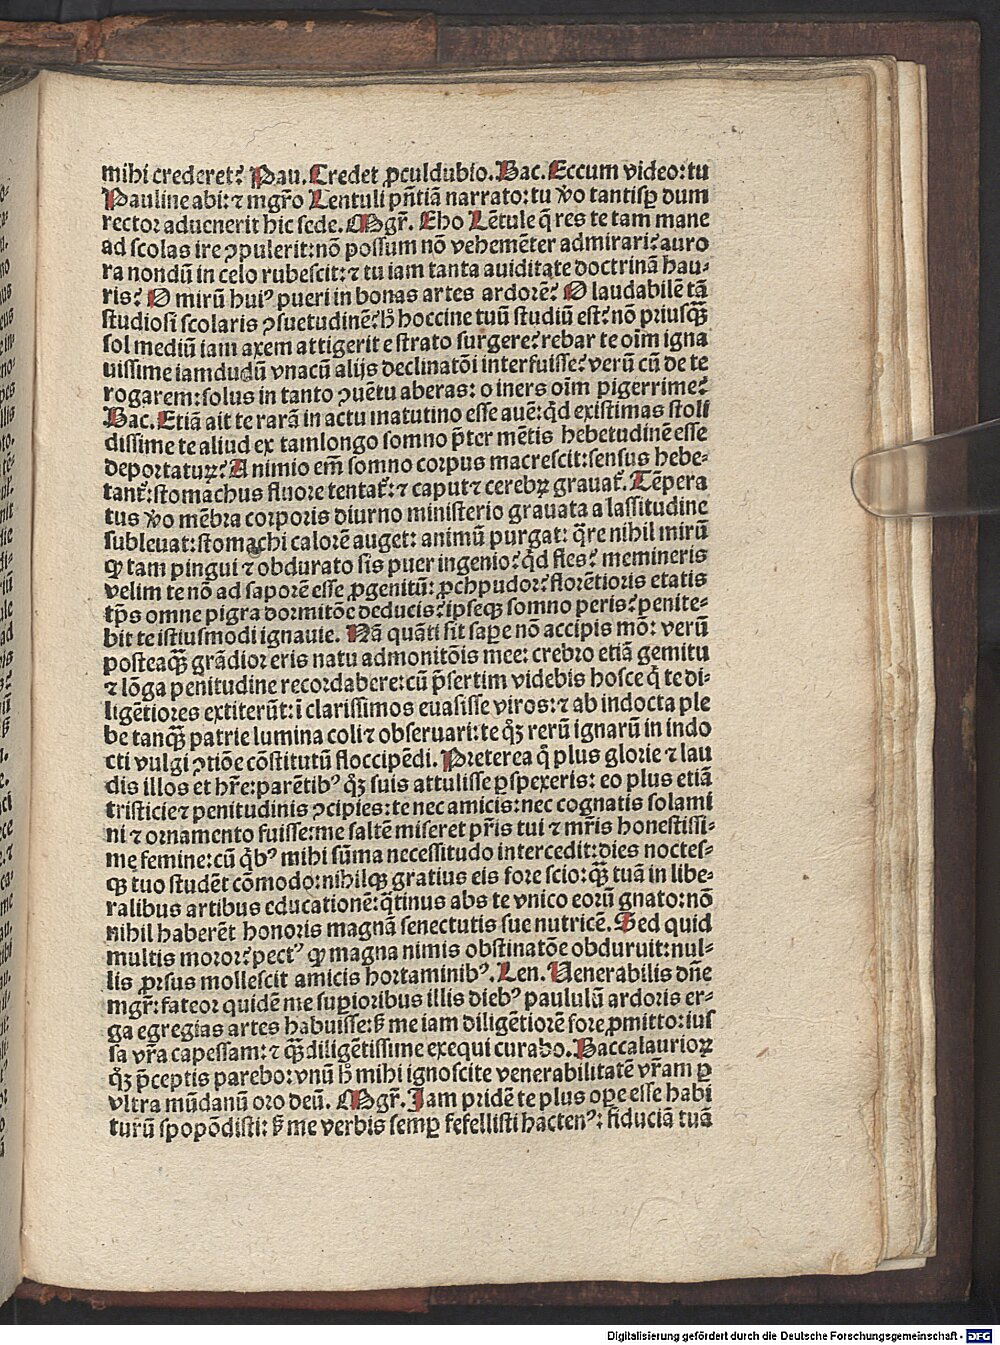 mihi crederet? Pau. Credet ꝓculdubio. Bac. Eccum video: tu
Pauline abi: ⁊ mgr̄o Lentuli pn̄tiā narrato: tu v̄o tantisꝑ dum
rector aduenerit hic sede. Mgr̄. Eho Lētule q̄ res te tam mane
ad scolas ire ꝯpulerit: nō possum nō vehemēter admirari? auro
ra nondū in celo rubescit: ⁊ tu iam tanta auiditate doctrinā hau-
ris? O mirū huiꝰ pueri in bonas artes ardorē? O laudabilē tā
studiosi scolaris ꝯsuetudinē? h̄ hoccine tuū studiū est? nō priusq̄ꝫ
sol mediū iam axem attigerit e strato surgere? rebar te oīm igna
uissime iamdudū vnacū alijs declinatōi interfuisse? verū cū de te
rogarem: solus in tanto ꝯuētu aberas: o iners oīm pigerrime?
Bac. Etiā ait te rarā in actu matutino esse auē: qd̄ existimas stoli
dissime te aliud ex tamlongo somno p̄ter mētis hebetudinē esse
deportaturꝫ? A nimio em̄ somno corpus macrescit: sensus hebe-
tant̄: stomachus fluore tentat̄: ⁊ caput ⁊ cerebꝝ grauat̄. Tēpera
tus v̄o mēbra corporis diurno ministerio grauata a lassitudine
subleuat: stomachi calorē auget: animū purgat: q̄re nihil mirū
ꝙ tam pingui ⁊ obdurato sis puer ingenio? qd̄ fles? memineris
velim te nō ad saporē esse ꝓgenitū: ꝓchpudor? florētioris etatis
tp̄s omne pigra dormitōe deducis? ipseqꝫ somno peris? penite-
bit te istiusmodi ignauie. Nā quāti sit saꝑe nō accipis mō: verū
posteaq̄ꝫ grādior eris natu admonitōis mee: crebro etiā gemitu
⁊ lōga penitudine recordabere: cū p̄sertim videbis hosce q̄ te di-
ligētiores extiterūt: ī clarissimos euasisse viros: ⁊ ab indocta ple
be tanq̄ꝫ patrie lumina coli ⁊ obseruari: te qꝫ̄ rerū ignarū in indo
cti vulgi ꝯtiōe cōstitutū floccipēdi. Preterea q̄ plus glorie ⁊ lau
dis illos et hr̄e: parētibꝰ qꝫ̄ suis attulisse ꝑspexeris: eo plus etiā
tristicie ⁊ penitudinis ꝯcipies: te nec amicis: nec cognatis solami
ni ⁊ ornamento fuisse: me saltē miseret pr̄is tui ⁊ mr̄is honestissi-
mę femine: cū qb̄ꝰ mihi sūma necessitudo intercedit: dies noctes-
qꝫ tuo studēt cōmodo: nihilqꝫ gratius eis fore scio: q̄ꝫ tuā in libe-
ralibus artibus educationē: q̄tinus abs te vnico eorū gnato: nō
nihil haberēt honoris magnā senectutis sue nutricē. Sed quid
multis moror? pectꝰ ꝙ magna nimis obstinatōe obduruit: nul-
lis ꝓrsus mollescit amicis hortaminibꝰ. Len. Uenerabilis dn̄e
mgr̄: fateor quidē me suꝑioribus illis diebꝰ paululū ardoris er-
ga egregias artes habuisse: s̄ me iam diligētiorē fore ꝓmitto: ius
sa vr̄a capessam: ⁊ q̄ꝫ diligētissime exequi curabo. Baccalaurioꝝ
qꝫ̄ p̄ceptis parebo: vnū h̄ mihi ignoscite venerabilitatē vr̄am ꝑ
vltra mūdanū oro deū. Mgr̄. Jam pridē te plus oꝑe esse habi
turū spopōdisti: s̄ me verbis semꝑ fefellisti hactenꝰ: fiduciā tuā
Digitalisierung gefördert durch die Deutsche Forschungsgemeinschaft - DFG